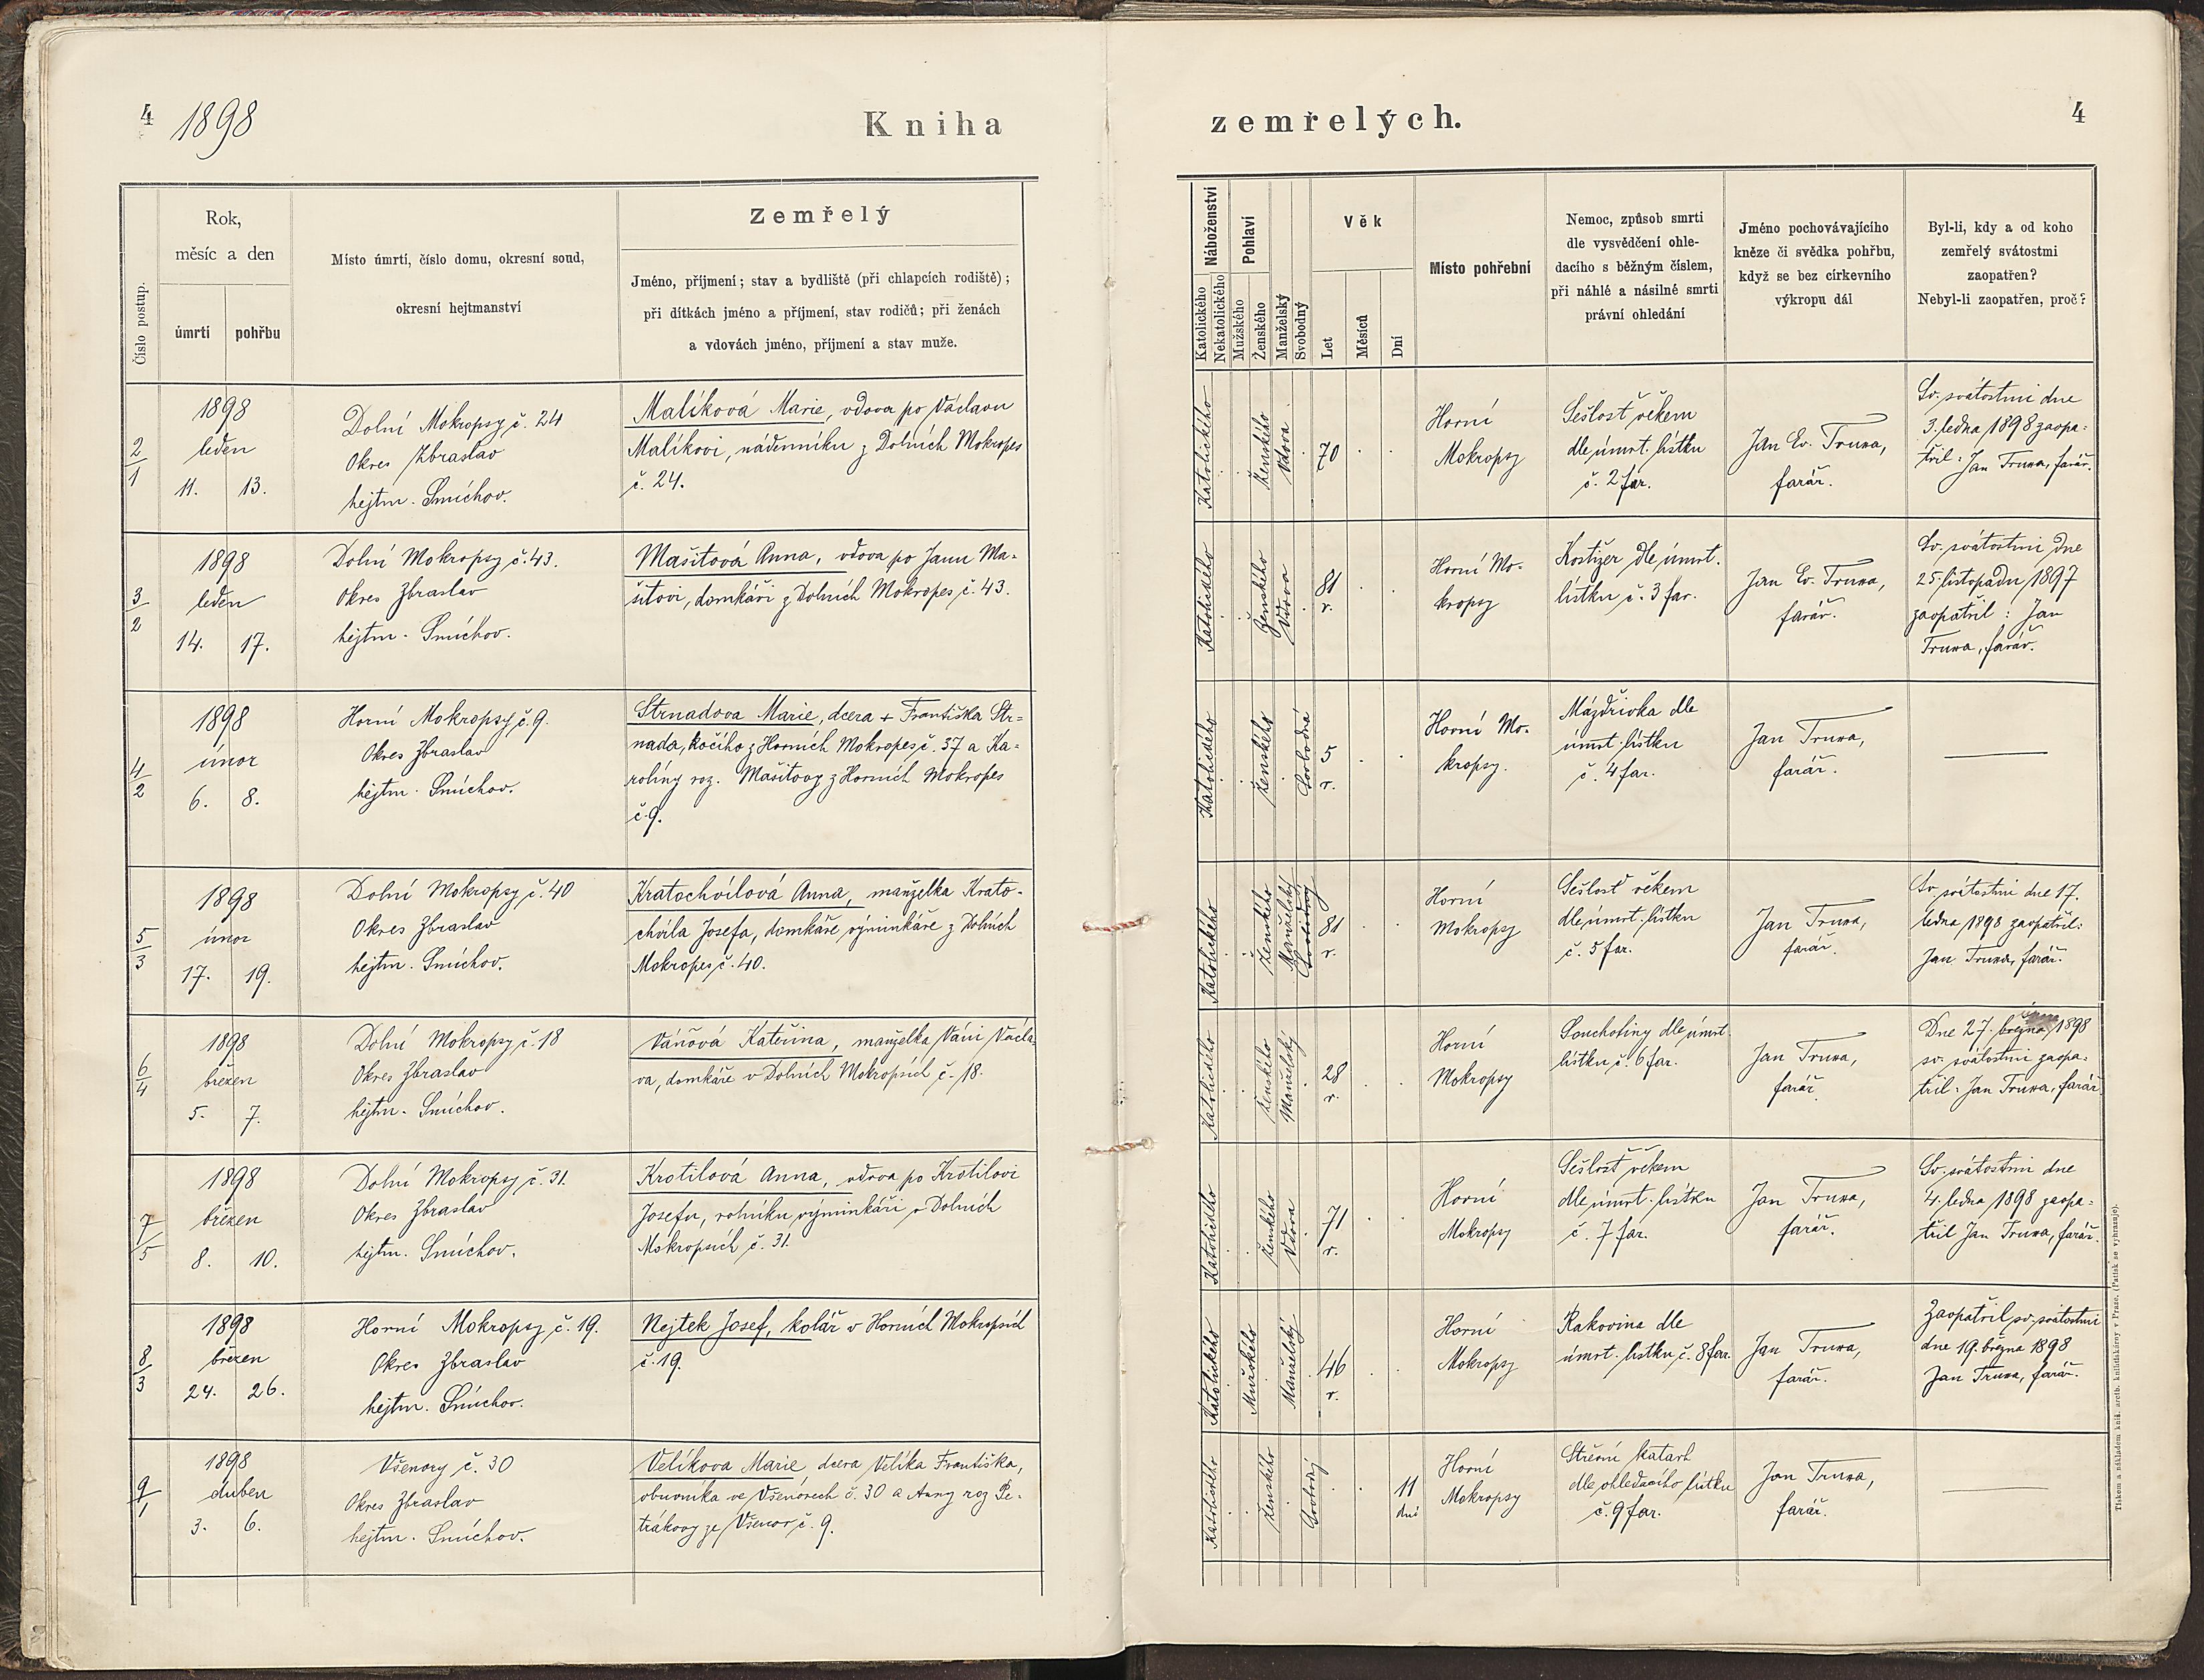 4 1898
Kniha
zemřelých.
4
Číslo postup.
Rok,
měsíc a den
úmrtí pohřbu
Místo úmrtí, číslo domu, okresní soud,
okresní hejtmanství
Zemřelý
Jméno, příjmení; stav a bydliště (při chlapcích rodiště);
při dítkách jméno a příjmení, stav rodičů; při ženách
a vdovách jméno, příjmení a stav muže.
Náboženství
Katolického
Nekatolického
Pohlaví
Mužského
Ženského
Manželský
Svobodný
Věk
Let
Měsíců
Dní
Místo pohřební
Nemoc, způsob smrti
dle vysvědčení ohle-
dacího s běžným číslem,
při náhlé a násilné smrti
právní ohledání
Jméno pochovávajícího
kněze či svědka pohřbu,
když se bez církevního
výkropu dál
Byl-li, kdy a od koho
zemřelý svátostmi
zaopatřen?
Nebyl-li zaopatřen, proč?
2/1
1898
leden
11. 13.
Dolní Mokropsy č. 24
Okres Zbraslav
hejtm. Smíchov.
Malíková Marie, vdova po Václavu
Malíkovi, nádenníku z Dolních Mokropes
č. 24.
Katolického
Ženského
Vdova
70
Horní
Mokropsy
Sešlosť věkem
dle úmrt. lístku
č. 2 far.
Jan Ev. Truxa,
farář.
Sv. svátostmi dne
3. ledna 1898 zaopa-
třil: Jan Truxa, farář.
3/2
1898
leden
14. 17.
Dolní Mokropsy č. 43.
Okres Zbraslav
hejtm. Smíchov.
Mašitová Anna, vdova po Janu Ma-
šitovi, domkáři z Dolních Mokropes č. 43.
Katolického
Ženského
Vdova
81
r.
Horní Mo-
kropsy
Kostižer dle úmrt.
lístku č. 3 far.
Jan Ev. Truxa,
farář.
Sv. svátostmi dne
25. listopadu 1897
zaopatřil: Jan
Truxa, farář.
4/2
1898
únor
6. 8.
Horní Mokropsy č. 9.
Okres Zbraslav
hejtm. Smíchov.
Strnadova Marie, dcera + Františka Str-
nada, kočího z Horních Mokropes č. 37 a Ka-
rolíny roz. Mašitovy z Horních Mokropes
č. 9.
Katolického
Ženského
Svobodná
5
r.
Horní Mo-
kropsy.
Mázdřivka dle
úmrt. lístku
č. 4 far.
Jan Truxa,
farář.
5/3
1898
únor
17. 19.
Dolní Mokropsy č. 40
Okres Zbraslav
hejtm. Smíchov.
Kratochvílová Anna, manželka Krato-
chvíla Josefa, domkáře výminkáře z Dolních
Mokropes č. 40.
Katolického
Ženského
Manželský
Svobodný
81
r.
Horní
Mokropsy
Sešlosť věkem
dle úmrt. lístku
č. 5 far.
Jan Truxa,
farář.
Sv svátostmi dne 17.
ledna 1898 zaopatřil:
Jan Truxa, farář.
6/4
1898
březen
5. 7.
Dolní Mokropsy č. 18
Okres Zbraslav
hejtm. Smíchov.
Váňová Kateřina, manželka Váni Václa-
va, domkáře v Dolních Mokropsích č. 18.
Katolického
Ženského
Manželský
28
r.
Horní
Mokropsy
Souchotiny dle úmrt.
lístku č. 6 far.
Jan Truxa,
farář.
Dne 27. března 1898
sv. svátostmi zaopa-
třil: Jan Truxa, farář
7/5
1898
březen
8. 10.
Dolní Mokropsy č. 31.
Okres Zbraslav
hejtm. Smíchov.
Krotilová Anna, vdova po Krotilovi
Josefu, rolníku výminkáři v Dolních
Mokropsích č. 31.
Katolického
Ženského
Vdova
71
r.
Horní
Mokropsy
Sešlosť věkem
dle úmrt. lístku
č. 7 far.
Jan Truxa,
farář.
Sv. svátostmi dne
4. ledna 1898 zaopa-
třil Jan Truxa, farář.
8/3
1898
březen
24. 26.
Horní Mokropsy č. 19.
Okres Zbraslav
hejtm. Smíchov.
Nejtek Josef, kolář v Horních Mokropsích
č. 19.
Katolického
Mužského
Manželský
46
r.
Horní
Mokropsy
Rakovina dle
úmrt. lístku č. 8 far.
Jan Truxa,
farář.
Zaopatřil sv. svátostmi
dne 19. března 1898
Jan Truxa, farář.
9/1
1898
duben
3. 6.
Všenory č. 30
Okres Zbraslav
hejtm. Smíchov.
Velíkova Marie, dcera Velíka Františka,
obuvníka ve Všenorech č. 30 a Anny roz Pe-
trákovy ze Všenor č. 9.
Katolického
Ženského
Svobodný
11
dní
Horní
Mokropsy
Střevní katarh
dle ohledacího lístku
č. 9 far.
Jan Truxa,
farář.